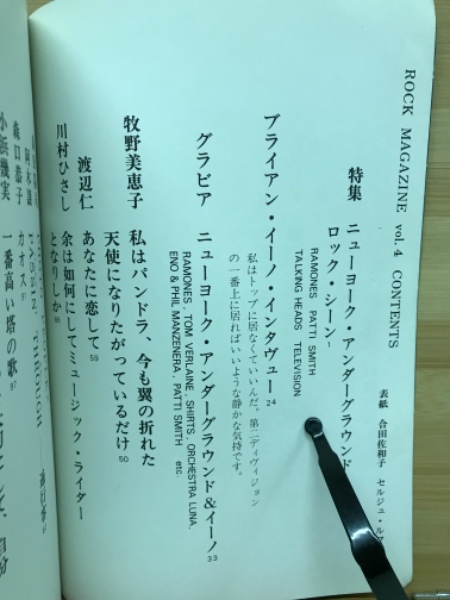 ROCK MAGAZINE vol. 4 CONTENTS
表紙 合田佐和子 セルジュ・ル
特集 ニューヨーク・アンダーグラウンド
ロック・シーン 1
RAMONES PATTI SMITH
TALKING HEADS TELEVISION
ブライアン・イーノ・インタヴュー 24
私はトップに居なくていいんだ。第二ディヴィジョン
の一番上に居ればいいような静かな気持です。
グラビア ニューヨーク・アンダーグラウンド&イーノ 33
RAMONES, TOM VERLAINE, SHIRTS, ORCHESTRA LUNA,
ENO & PHIL MANZENERA, PATTI SMITH etc.
牧野美恵子 私はパンドラ、今も翼の折れた
天使になりたがっているだけ 50
渡辺仁 あなたに恋して 59
川村ひさし 余は如何にしてミュージック・ライター
となりしか
THROUGH
阿木譲 カオス
森口恭子 一番高い塔の歌 97
小浜幾実